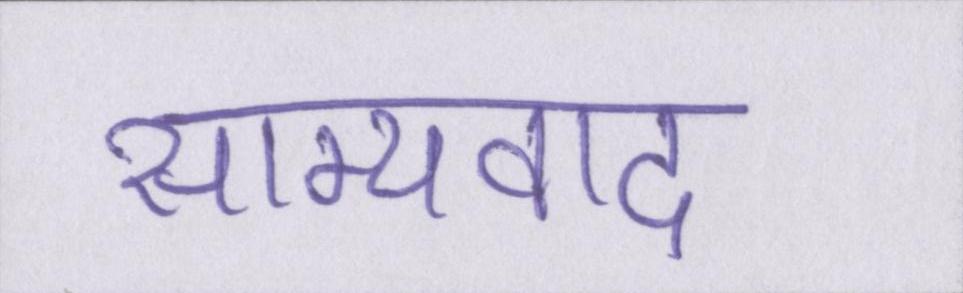 साम्यवाद